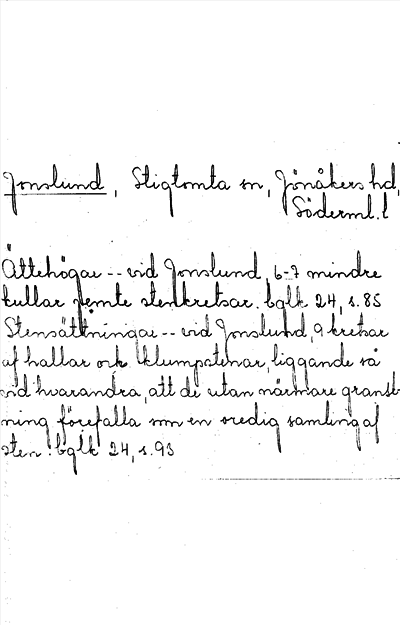 Jonslund, Stigtomta sn, Jönåkers hd,
Söderml. l
Ättehögar -- vid Jonslund, 6-7 mindre
kullar jemte stenkretsar. bglk 24, s. 85
Stensättningar -- vid Jonslund, 9 kretsar
af hallar och klumpstenar, liggande så
vid hvarandra, att de utan närmare gransk-
ning förefalla som en oredig samling af
sten. bglk 24, s. 93